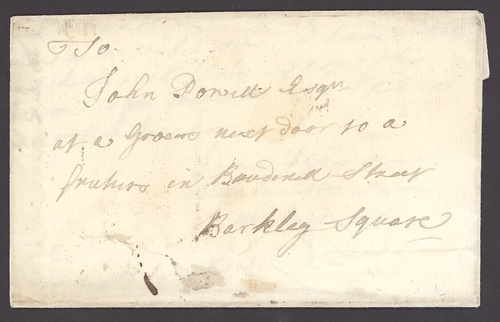 To
John Powell Esqr
at a Grocers next door to a
fruters in Street
Barkley Square